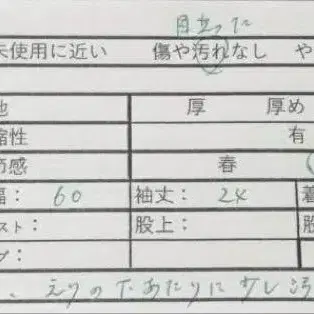 目立った
未使用に近い 傷や汚れなし や
地 厚 厚め
縮性 有
節感 春
幅: 60 袖丈: 24 着
スト: 股上: 股
プ:
、えりの下あたりに少し汚